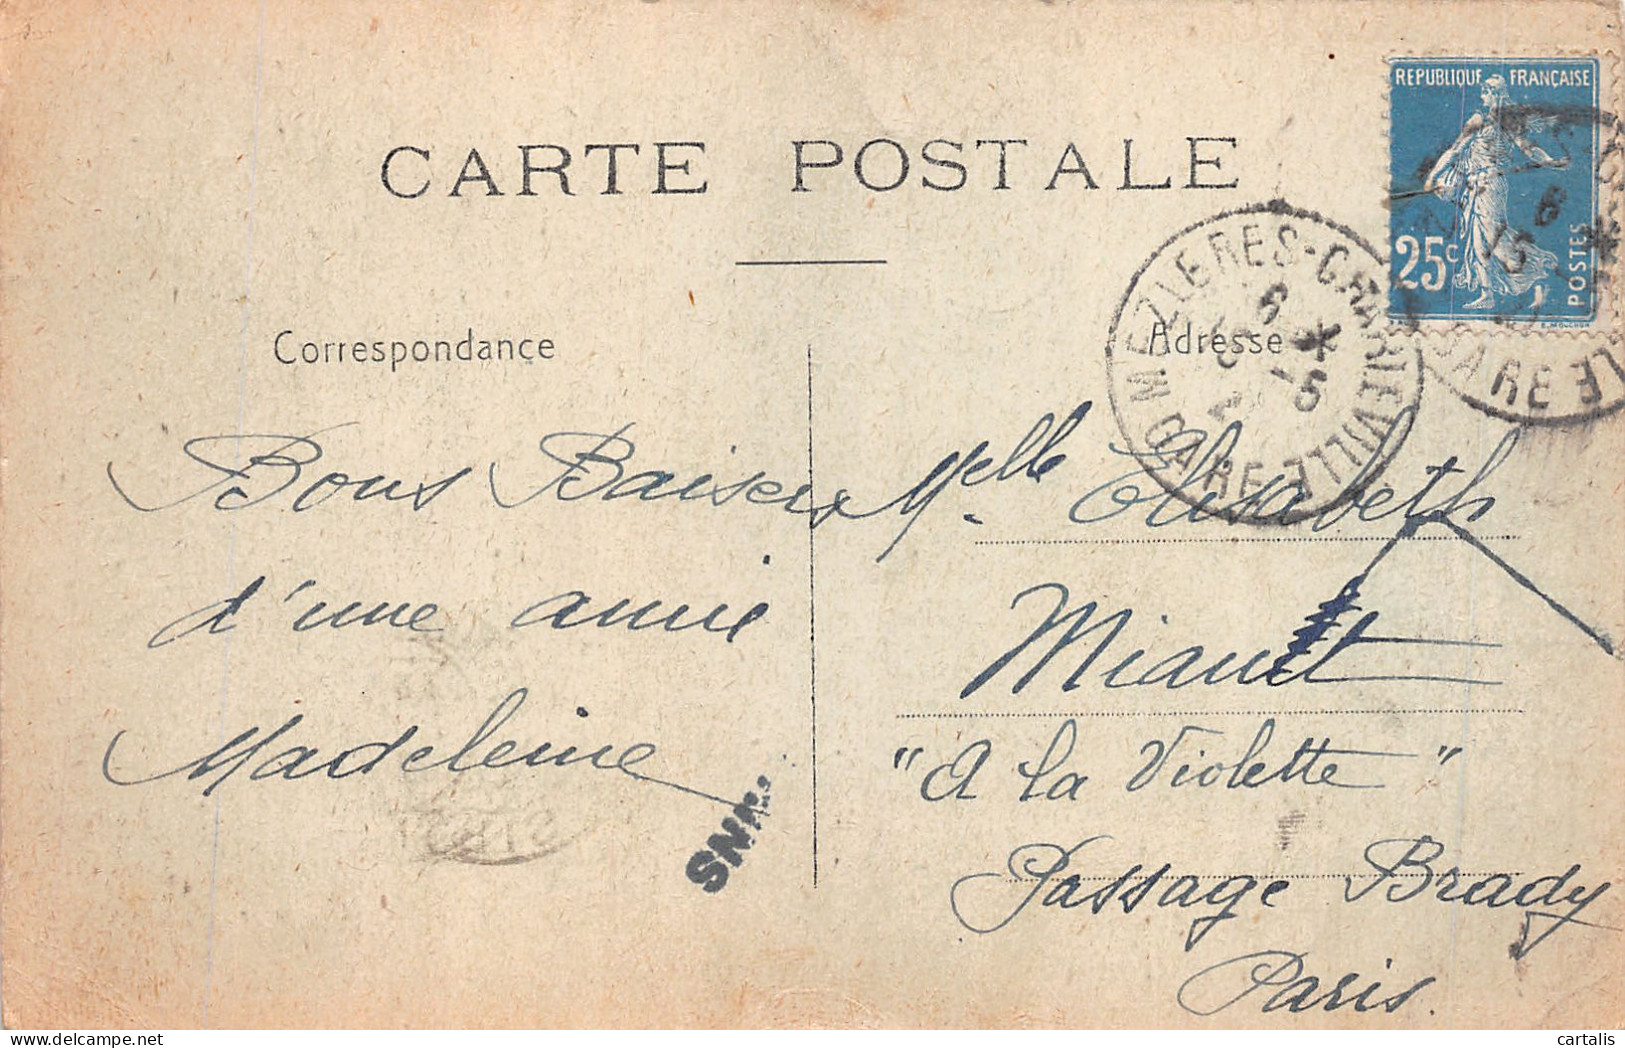 CARTE POSTALE
REPUBLIQUE FRANÇAISE
25c
POSTES
E. MOUCHON
MEZIERES-CHARLEVILLE
GARE
GARE
Correspondance
Adresse
Bons Baisers
d'une amie
Madeleine
SNN.
Melle Elisabeth
"A la Violette"
Passage Brady
Paris.
cartalis